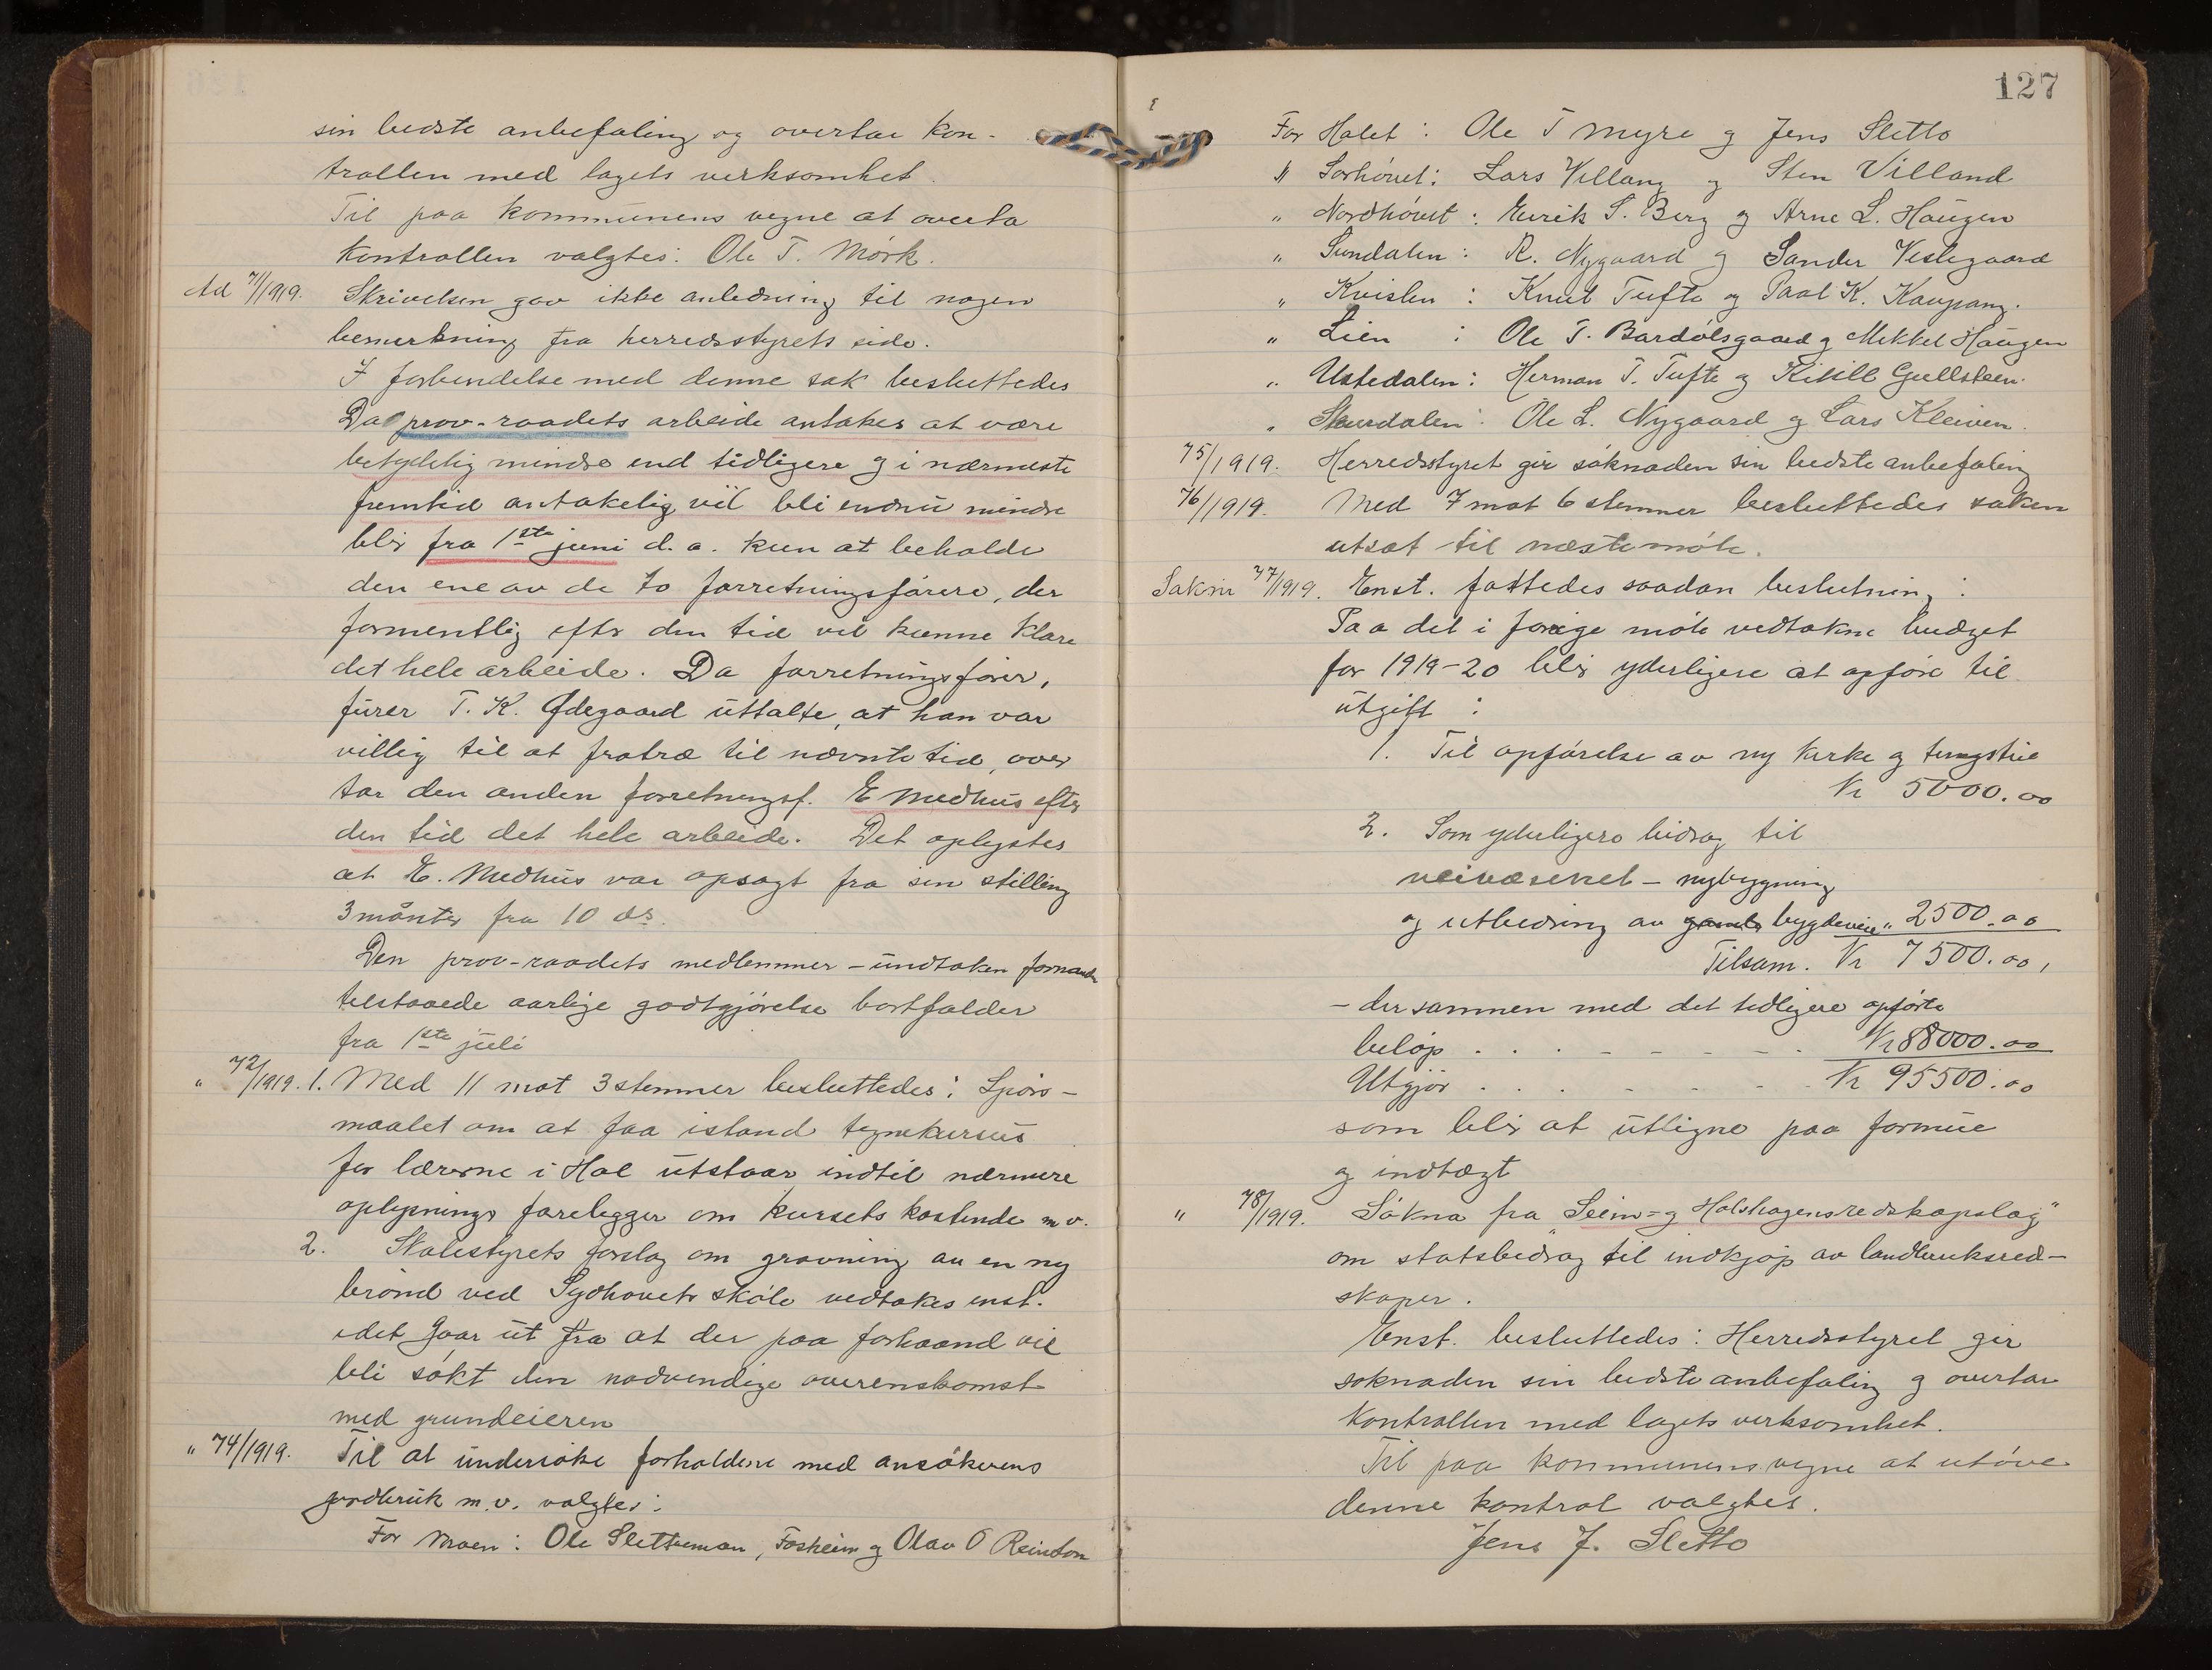 sin bedste anbefaling og overtar kon-
trollen med lagets verksomhet.
Til paa kommunens vegne at overta
kontrollen valgtes: Ole T. Mørk.
Ad 71/1919. Skrivelsen gav ikke anledning til nogen
bemerkning fra herredsstyrets side.
I forbindelse med denne sak besluttedes
Da prov-raadets arbeide antakes at være
betydelig mindre end tidligere og i nærmeste
fremtid antakelig vil bli endnu mindre
blir fra 1ste juni d.a. kun at beholde
den ene av de to forretningsførere, der
formentlig efter den tid vil kunne klare
det hele arbeide. Da forretningsfører,
furer T. K. Ødegaard uttalte, at han var
villig til at fratræ til nævnte tid, over
tar den anden forretningsf. E Medhus efter
den tid det hele arbeide. Det oplystes
at E. Medhus var opsagt fra sin stilling
3 månter fra 10 ds.
Den prov-raadets medlemmer - undtaken formand
tilstaaede aarlige godtgjørelse bortfalder
fra 1ste juli
" 72/1919. 1. Med 11 mot 3 stemmer besluttedes: Spørs-
maalet om at faa istand tegnekursus
for lærerne i Hol utstaar indtil nærmere
oplysnings forelegger om kursets kostende m.v.
2. Skolestyrets forslag om gravning av en ny
brønd ved Sydhovets skole vedtakes enst.
idet gaar ut fra at der paa forhaand vil
bli søkt den nødvendige overenskomst
med grundeieren
" 74/1919. Til at undersøke forholdene med ansøkerens
jordbruk m.v. valgtes:
For Moen: Ole Sletteman, Fosheim og Olav O Reinton
127
For Holet: Ole T Myre og Jens Sletto
" Sørhövet: Lars Villang og Sten Villand
" Nordhövet: Eirik S. Berg og Arne L. Haugen
" Sundalen: R. Nygaard og Sander Veslegaard
" Kvislen: Knut Tufte og Paal K. Kaupang.
" Lien: Ole T. Bardølsgaard og Mikkel Haugen
" Ustedalen: Herman T. Tufte og Kitill Gullsteen.
" Skurdalen: Ole L. Nygaard og Lars Kleiven.
75/1919. Herredsstyret gir søknaden sin bedste anbefaling
76/1919. Med 7 mot 6 stemmer besluttedes saken
utsat til næste møte.
Saknr 77/1919. Enst. fattedes saadan beslutning:
Paa det i forrige møte vedtakne budget
for 1919-20 blir yderligere at opføre til
utgift:
1. Til opførelse av ny kirke og tingstue
Kr 5000.00
2. Som yderligere bidrag til
veivæsenet - nybygning
og utbedring av gamle bygdeveie " 2500.00
Tilsam. Kr 7500.00,
- der sammen med det tidligere opførte
beløp . . . . . . . Kr 88000.00
Utgjør . . . . . . Kr 95500.00
som blir at utligne paa formue
og indtægt
" 78/1919. Søkna fra "Seim- og Holshagens redskapslag"
om statsbidrag til indkjøp av landbruksred-
skaper.
Enst. besluttedes: Herredsstyret gir
søknaden sin bedste anbefaling og overtar
kontrollen med lagets verksomhet.
Til paa kommunens vegne at utøve
denne kontrol valgtes.
Jens J. Sletto